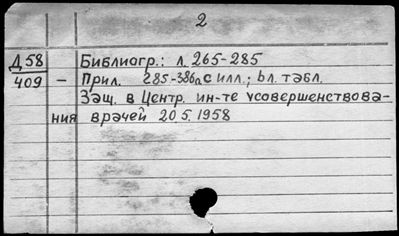 2
Д58 Библиогр.: л. 265-285
409 – Прил. 285-386а с илл.; вл. табл.
Защ. в Центр. ин-те усовершенствова-
ния врачей 20 5. 1958